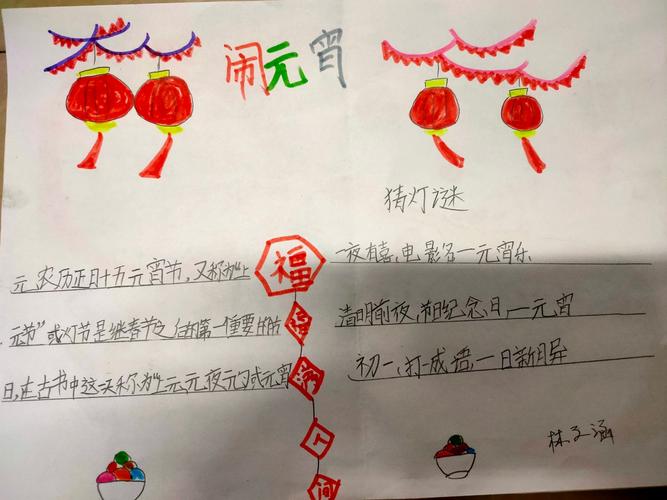 闹元宵
猜灯谜
元 农历正月十五元宵节,又称为上
元节"或灯节是继春节之后的第一重要的节
日,在古书中这一天称为上元,元夜元夕或元宵
福
满
个
间
一夜有喜,电影名一元宵乐
清明前夜,节日纪念日,一元宵
初一,打一成语,一日新月异
林文涵